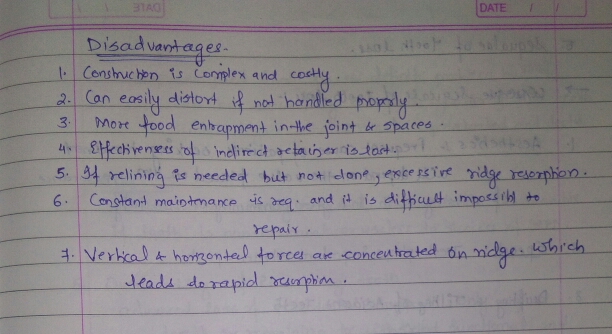 DATE / /
Disadvantages-
1. Construction is complex and costly.
2. Can easily distort if not handled properly.
3. More food entrapment in the joint & spaces.
4. Effectiveness of indirect retainer is lost.
5. If relining is needed but not done, excessive ridge resorption.
6. Constant maintenance is req. and it is difficult impossibl to
repair.
7. Vertical & horizontal forces are concentrated on ridge. which
leads to rapid resorption.